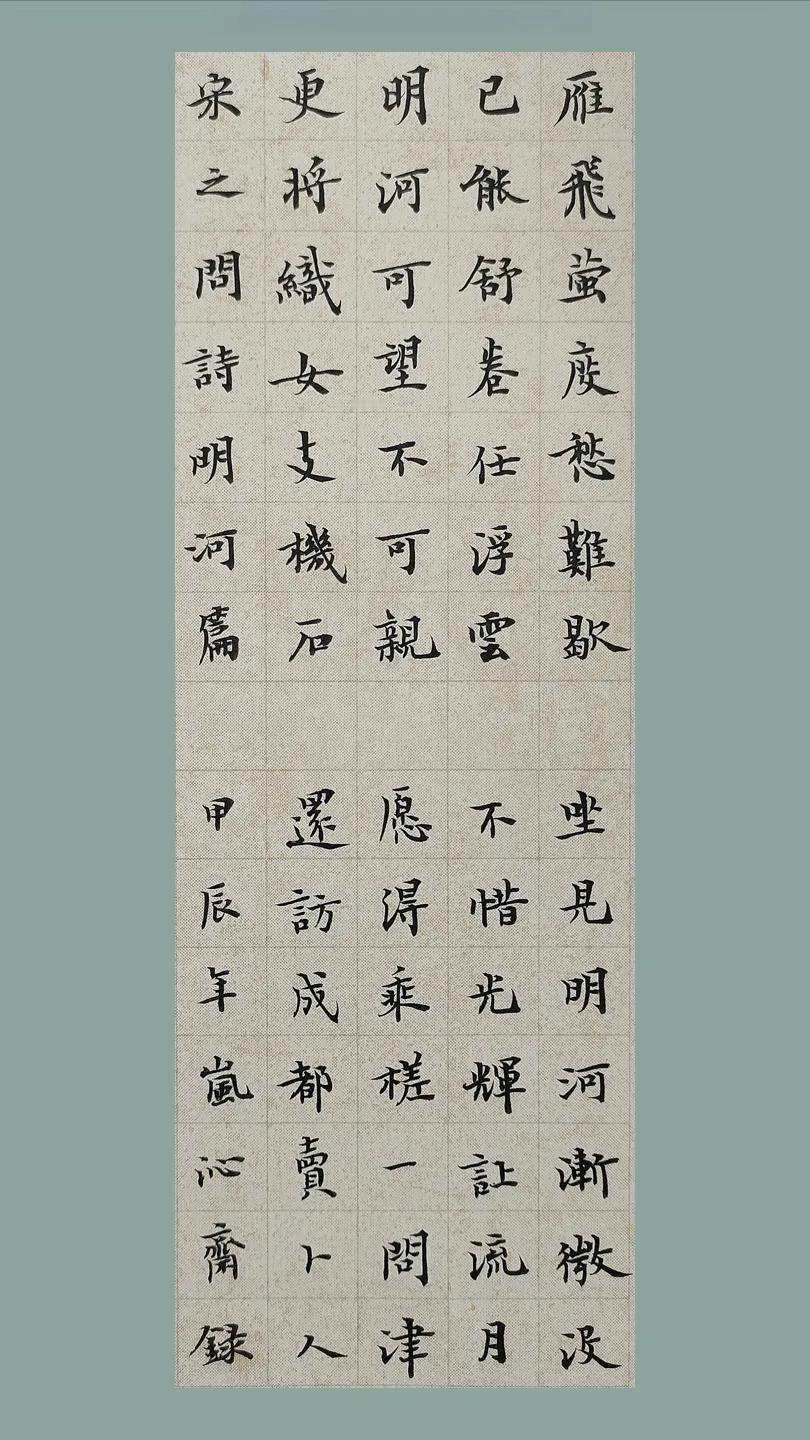 雁飛螢度愁難歇 坐見明河漸微没
已能舒卷任浮雲 不惜光輝让流月
明河可望不可親 愿得乘槎一問津
更将織女支機石 還訪成都賣卜人
宋之問詩明河篇 甲辰年嵐沁齋録